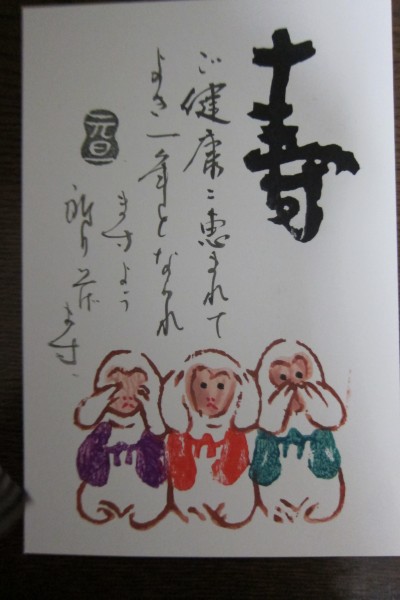 寿
ご健康に恵まれて
よき一年となられ
ますよう
祈り上げ
ます
元旦